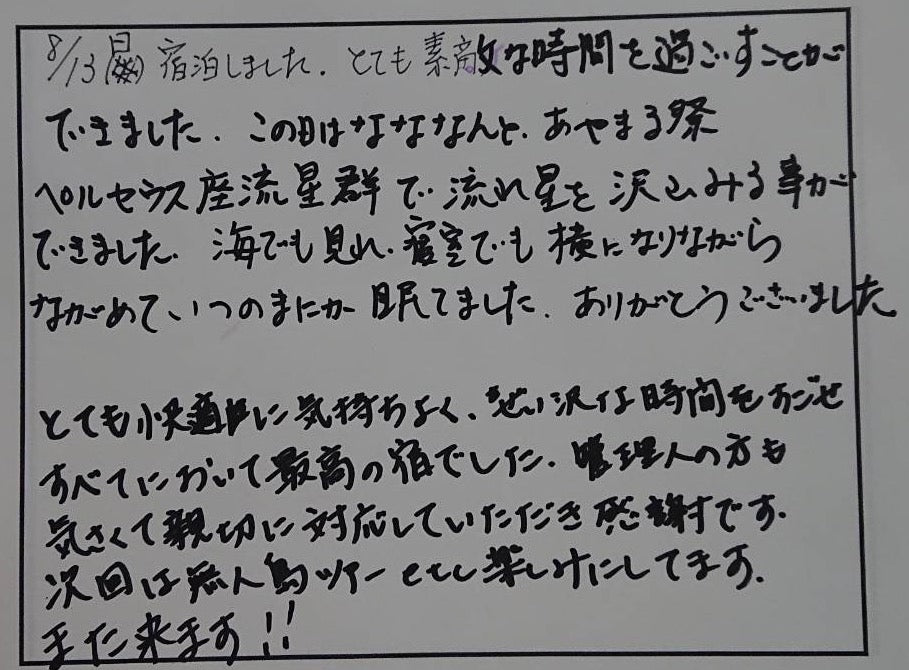 8/13(日) 宿泊しました. とても素敵な時間を過ごすことが
できました. この日はなななんと. あやまる祭
ペルセウス座流星群で流れ星を沢山みる事が
できました. 海でも見れ. 寝室でも横になりながら
ながめていつのまにか眠てました. ありがとうございました
とても快適に気持ちよく. ぜい沢な時間をすごせ
すべてにおいて最高の宿でした. 管理人の方も
気さくで親切に対応していただき感謝です.
次回は無人島ツアーetc楽しみにしてます.
また来ます!!